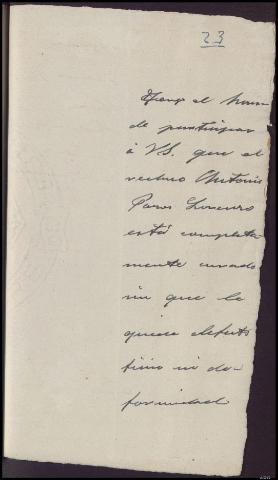 23
Tengo el honor
de participar
á V.S. que el
recluso Antonio
Pavos Lorenzo
está completa-
mente curado
sin que le
quede defecto
físico ni de-
formidad